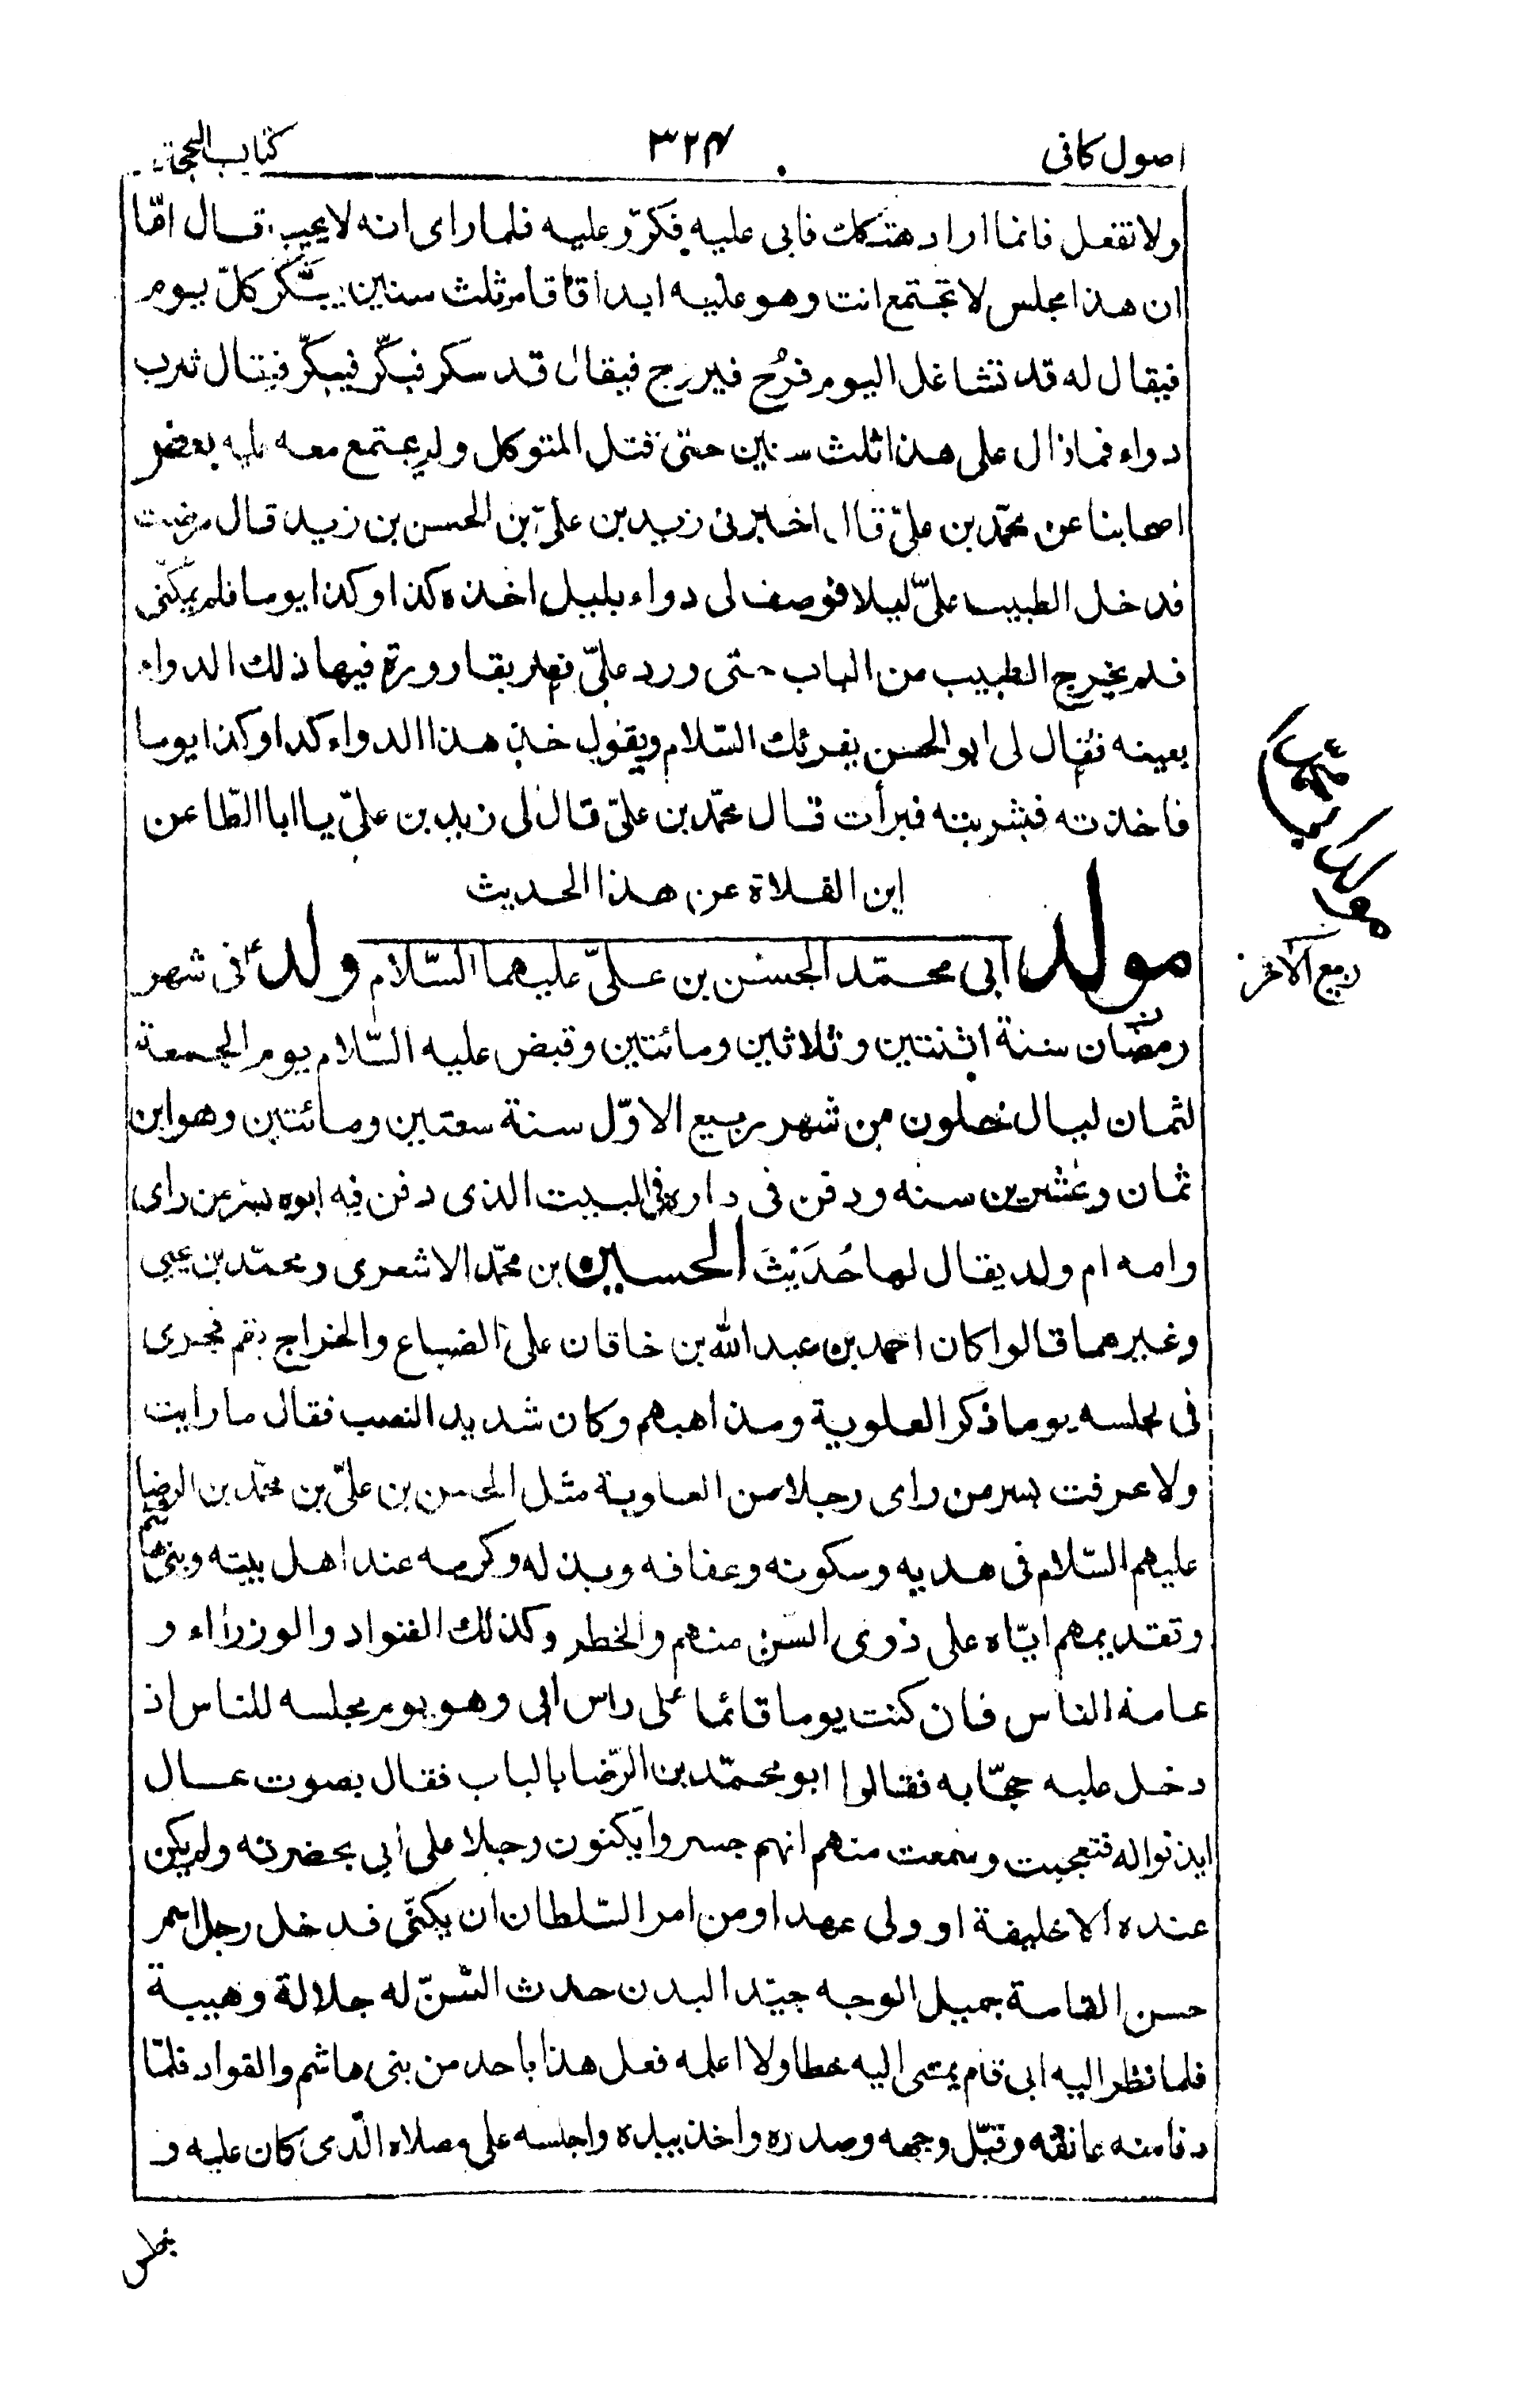 اصول كافى ٣٢٤ كتاب الحجة
ولا تفعل فانما اراد هتكك فابى عليه فكرّر عليه فلما راى انه لا يجيب قال امّا
ان هذا مجلس لا تجتمع انت وهو عليه ابدا فاقام ثلث سنين يبكّر كلّ يوم
فيقال له قد تشاغل اليوم فرُح فيروح فيقال قد سكر فبكّر فيبكّر فيقال شرب
دواء فما زال على هذا ثلث سنين حتى قتل المتوكل ولم يجتمع معه عليه بعض
اصحابنا عن محمّد بن علىّ قال اخبرنى زيد بن علىّ بن الحسن بن زيد قال مرضت
فدخل الطبيب علىّ ليلا فوصف لى دواء بليل اخذه كذا وكذا يوما فلم يمكنّى
فلم يخرج الطبيب من الباب حتى ورد علىّ نصر بقارورة فيها ذلك الدواء
بعينه فقال لى ابو الحسن يقرئك السّلام ويقول خذ هذا الدواء كذا وكذا يوما
فاخذته فشربته فبرأت قال محمّد بن علىّ قال لى زيد بن علىّ يا ابا الطّاعن
اين الغلاة عن هذا الحديث
مولد ابى محمّد الحسن بن علىّ عليهما السّلام ولد ع فى شهر
رمضان سنة اثنتين وثلاثين ومائتين وقبض عليه السّلام يوم الجمعة
لثمان ليال خلون من شهر ربيع الاوّل سنة ستين ومائتين وهو ابن
ثمان وعشرين سنة ودفن فى داره فى البيت الذى دفن فيه ابوه بسر من راى
وامه ام ولد يقال لها حُدَيْثَ الحسين بن محمّد الاشعرى ومحمّد بن يحيى
وغيرهما قالوا كان احمد بن عبد الله بن خاقان على الضياع والخراج بقم فجرى
فى مجلسه يوما ذكر العلوية ومذاهبهم وكان شديد النصب فقال ما رايت
ولا عرفت بسر من راى رجلا من العلوية مثل الحسن بن علىّ بن محمّد بن الرضا
عليهم السّلام فى هديه وسكونه وعفافه ونبله وكرمه عند اهل بيته وبنى هاشم
وتقديمهم ايّاه على ذوى السّن منهم والخطر وكذلك القواد والوزراء و
عامة الناس فان كنت يوما قائما على راس ابى وهو يوم مجلسه للناس اذ
دخل عليه حجّابه فقالوا ابو محمّد بن الرّضا بالباب فقال بصوت عال
ايذنوا له فتعجبت وسمعت منهم انهم جسروا يكنون رجلا على ابى بحضرته ولم يكن
عنده الا خليفة او ولى عهد او من امر السّلطان ان يكنّى فدخل رجل اسمر
حسن القامة جميل الوجه جيّد البدن حدث السّنّ له جلالة وهيبة
فلما نظر اليه ابى قام يمشى اليه خطا ولا اعلمه فعل هذا باحد من بنى هاشم والقواد فلمّا
دنا منه عانقه وقبّل وجهه وصدره واخذ بيده واجلسه على مصلاه الّذى كان عليه و
ربيع الآخر
جلس